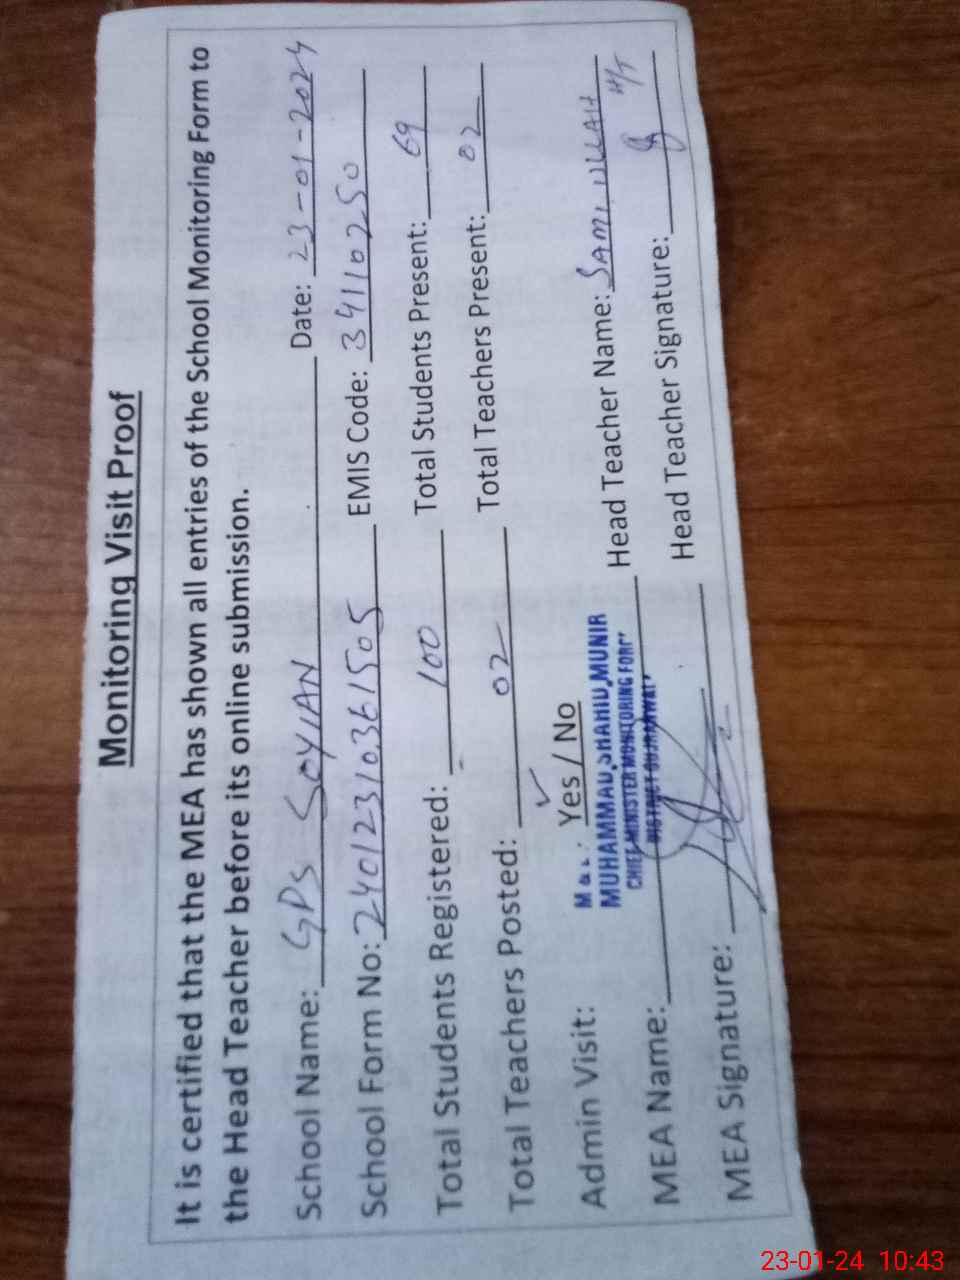 Monitoring Visit Proof
It is certified that the MEA has shown all entries of the School Monitoring Form to
the Head Teacher before its online submission.
School Name: GPS SOYIAN Date: 23-01-2024
School Form No: 24012310361505 EMIS Code: 34110250
Total Students Registered: 100 Total Students Present: 69
Total Teachers Posted: 02 Total Teachers Present: 02
Admin Visit: ✓ Yes / No
MUHAMMAD SHAHID MUNIR
CHIEF MINISTER MONITORING FORC
DISTRICT GUJRANWALA
MEA Name: Head Teacher Name: SAMI ULLAH
MEA Signature: Head Teacher Signature: H/T
23-01-24 10:43